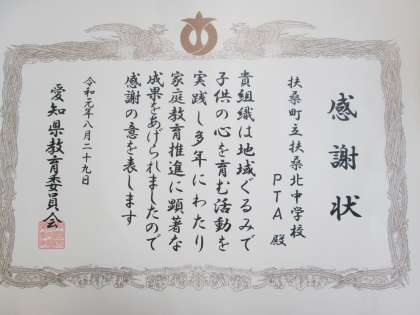 感謝状
扶桑町立扶桑北中学校
PTA 殿
貴組織は地域ぐるみで
子供の心を育む活動を
実践し多年にわたり
家庭教育推進に顕著な
成果をあげられましたので
感謝の意を表します
令和元年八月二十九日
愛知県教育委員会